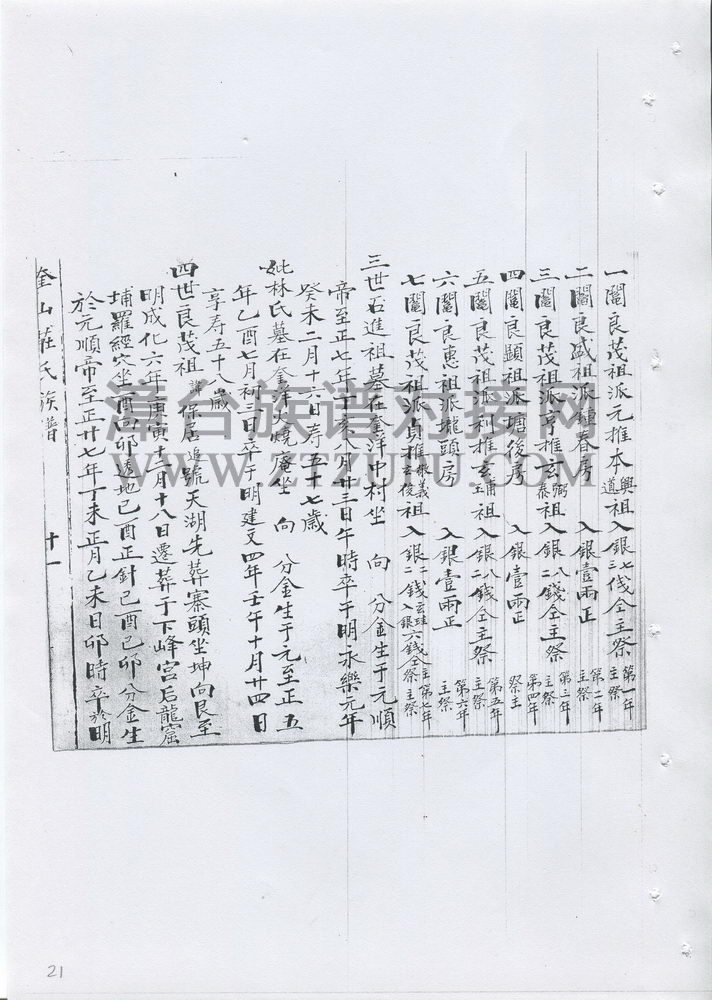 一鬮良茂祖派元推本興道祖入銀七錢仝主祭 第一年主祭
二鬮良盛祖派鍾春房 入銀壹兩正 第二年主祭
三鬮良茂祖派亨推玄弼祖入銀八錢仝主祭 第三年主祭
四鬮良顯祖派塘後房 入銀壹兩正 第四年祭主
五鬮良茂祖派利推玄甫祖入銀八錢仝主祭 第五年主祭
六鬮良惠祖派壠頭房 入銀壹兩正 第六年主祭
七鬮良茂祖派貞推玄俊祖入銀二錢 入銀六錢仝祭 第七年主祭
三世石進祖墓在奎洋中村坐 向 分金生于元順
帝至正七年丁亥八月廿三日午時卒于明永樂元年
癸未二月十六日寿五十七歲
妣林氏墓在奎洋火燒庵坐 向 分金生于元至正五
年乙酉七月初三日卒于明建文四年壬午十月廿四日
享寿五十八歲
四世良茂祖諱保居追號天湖先葬寨頭坐坤向艮至
明成化六年庚寅十二月十八日遷葬于下峰宮后龍窟
埔羅經穴坐酉向卯透地己酉正針己酉己卯分金生
於元順帝至正廿七年丁未正月乙未日卯時卒於明
奎山莊氏族譜 十一
漳台族谱对接网
WWW.ZTZUPU.COM
21